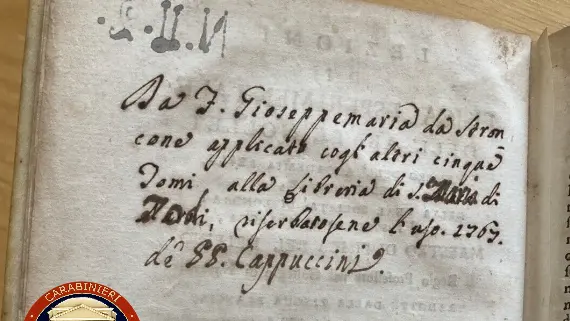 Da F. Gioseppemaria da Stron
cone applicato cogl'altri cinque
Tomi, alla Libreria di S. di
Todi, riserbatosene l'uso. 1767.
de PP. Cappuccini.
CARABINIERI